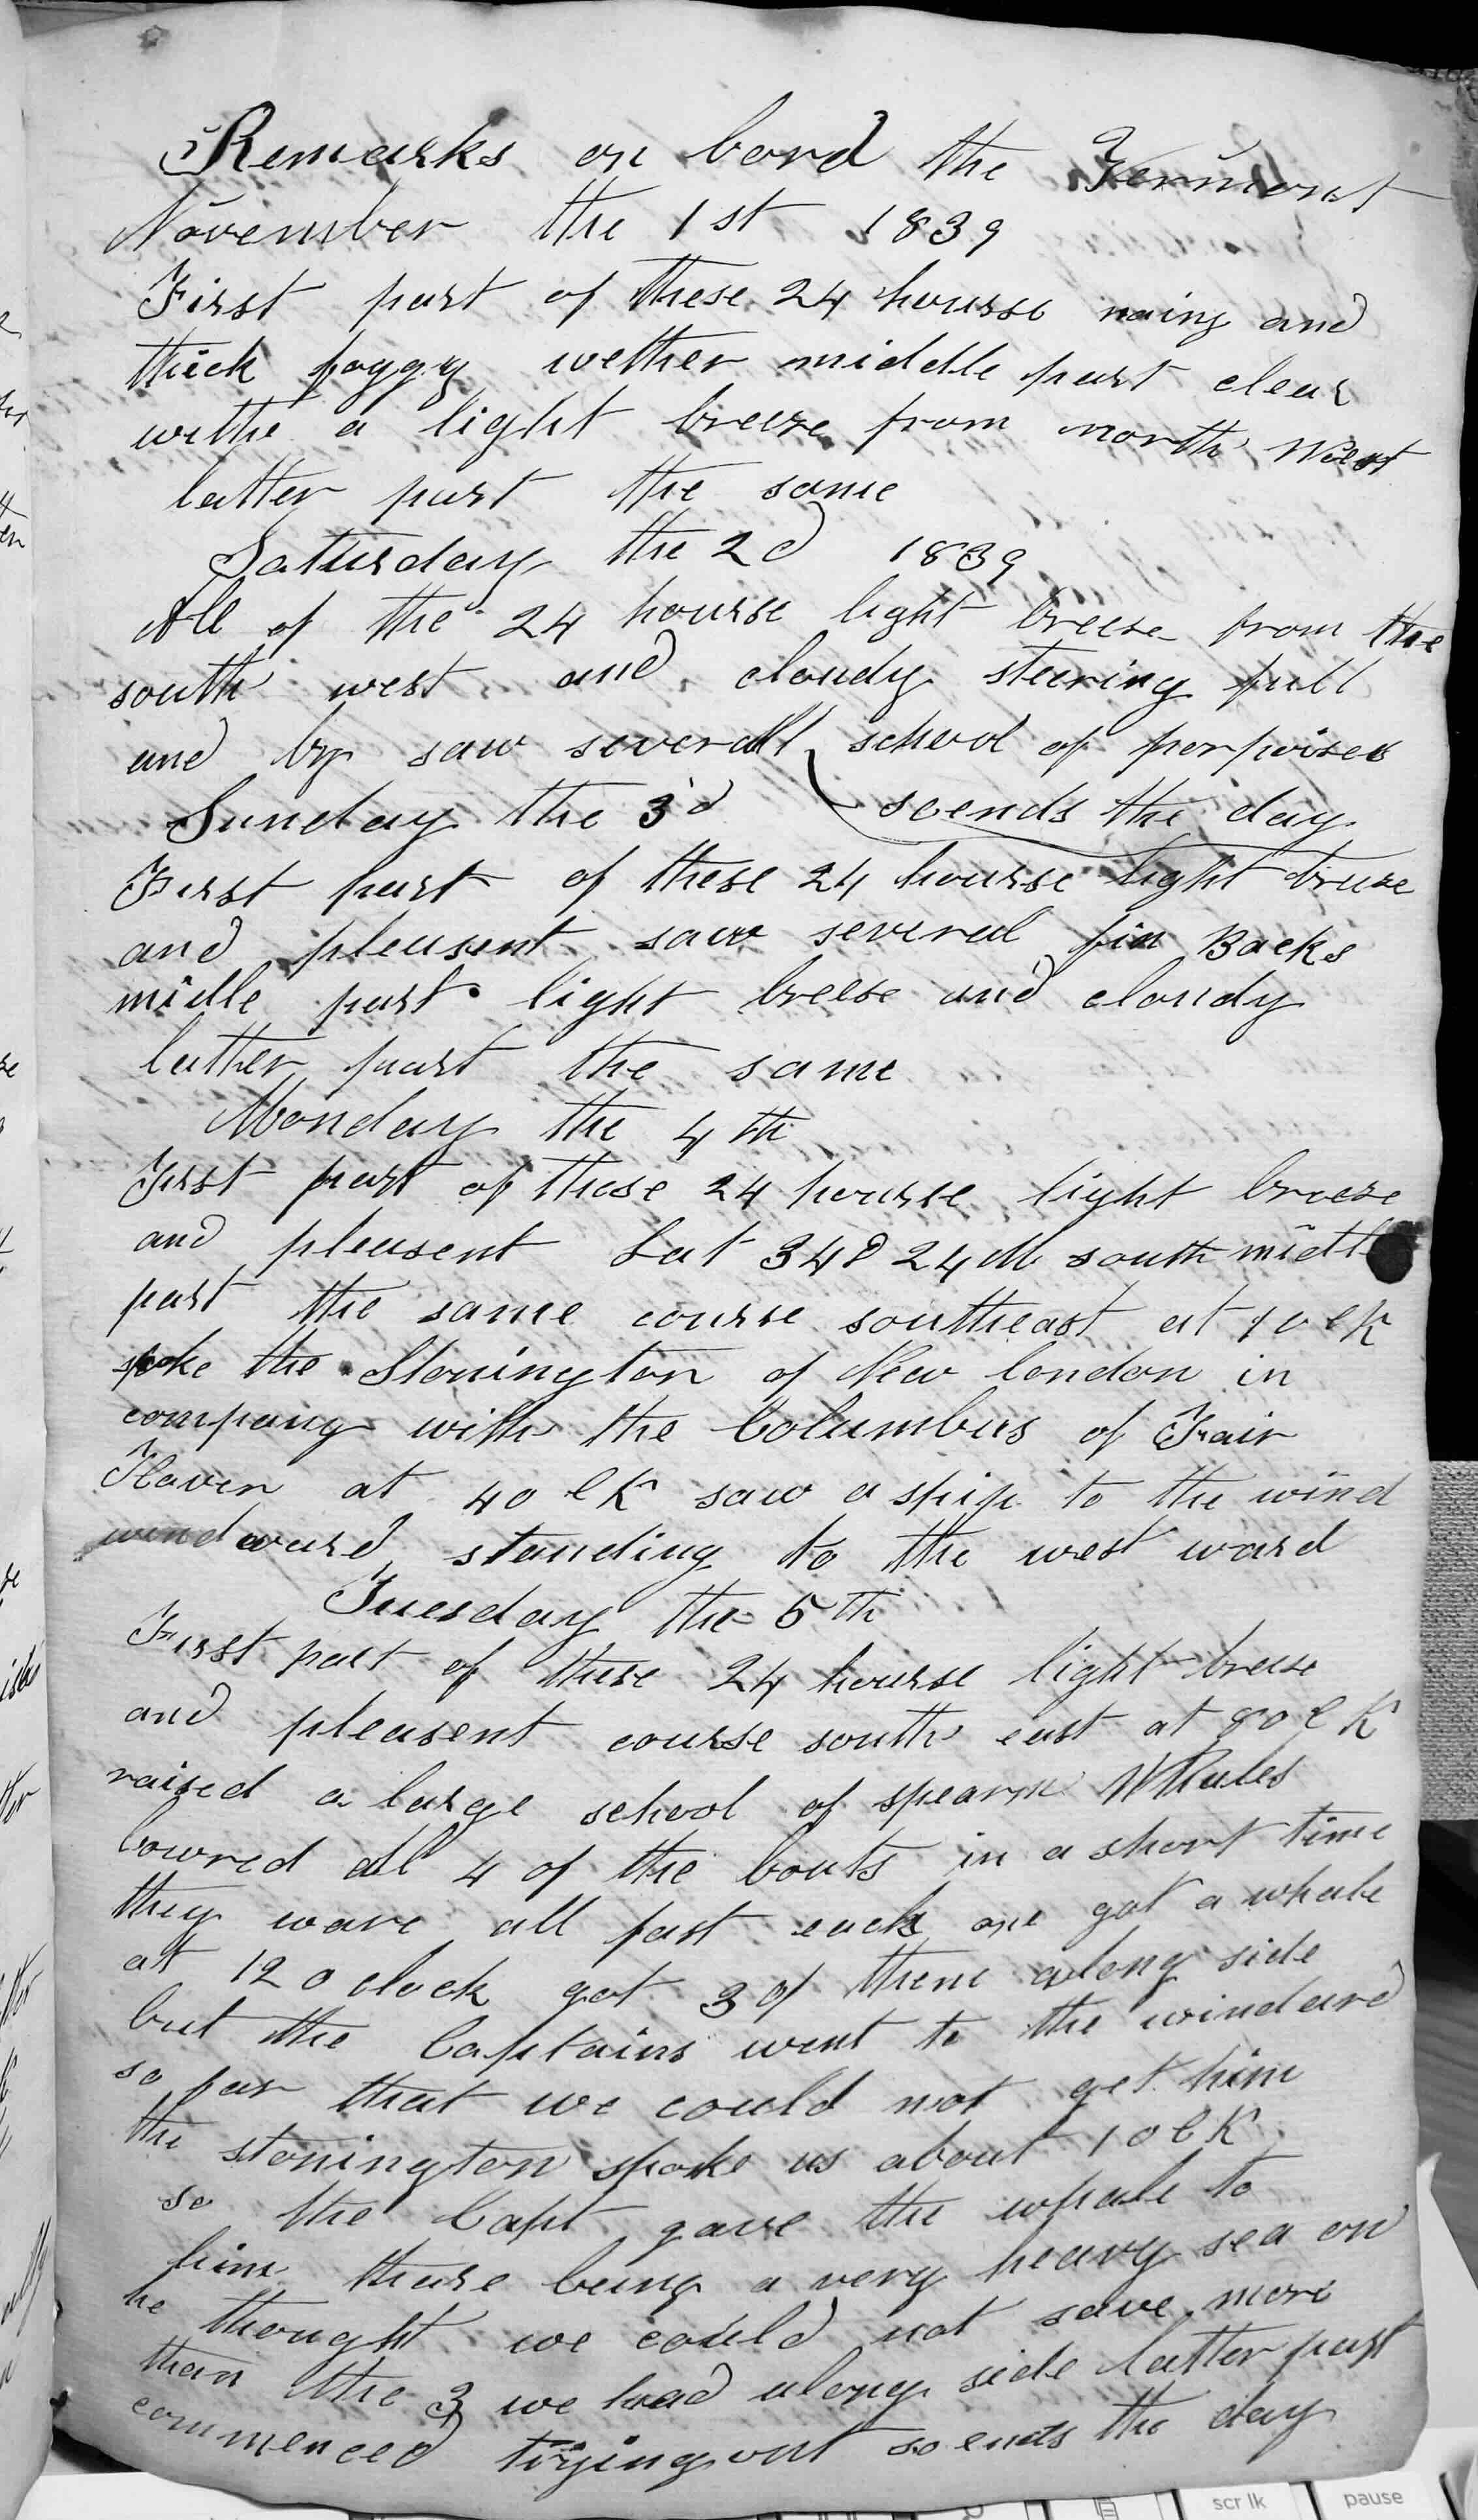 Remarks on bord the Vermont
November the 1st 1839
First part of these 24 hourse rainy and
thick foggy wether middle part clear
withe a light breeze from north West
latter part the same
Saturday the 2d 1839
All of the 24 hourse light breese from the
south west and cloudy steering full
and by saw severall school of porpoises
Sunday the 3d so ends the day
First part of these 24 hourse light breese
and pleasent saw several fin Backs
midle part light breese and cloudy
latter part the same
Monday the 4th
First part of these 24 hourse light breeze
and pleasent Lat 34D 24M south midtl
part the same course southeast at 1 o lK
spoke the Stonington of New london in
company with the Columbus of Fair
Haven at 4 o lK saw a ship to the wind
windward standing to the west ward
Tuesday the 5th
First part of these 24 hourse light breese
and pleasent course south east at 8 o lK
raised a large school of spearm Whales
lowred all 4 of the boats in a short time
they ware all fast each one got a whale
at 12 o clock got 3 of them along side
but the Captains went to the windard
so far that we could not get him
the stonington spoke us about 1 o lK
so the Capt gave the whale to
him thare being a very heavy sea on
he thought we could not save more
than the 3 we had along side latter part
commenced trying out so ends the day
scr lk
pause